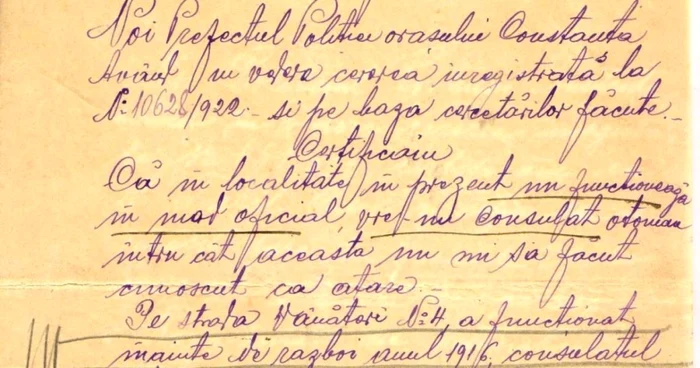 Noi Prefectul Politiei orasului Constanta
Având in vedere cererea inregistrată la
N: 10628/922 - si pe baza cercetărilor făcute.-
Certificăm
Că in localitate in prezent nu functionează
in mod oficial, vre-un Consulat otoman
intru cât aceasta nu ni s'a facut
cunoscut ca atare.-
Pe strada Vânători N: 4, a functionat
inainte de razboi anul 1916, consulatul